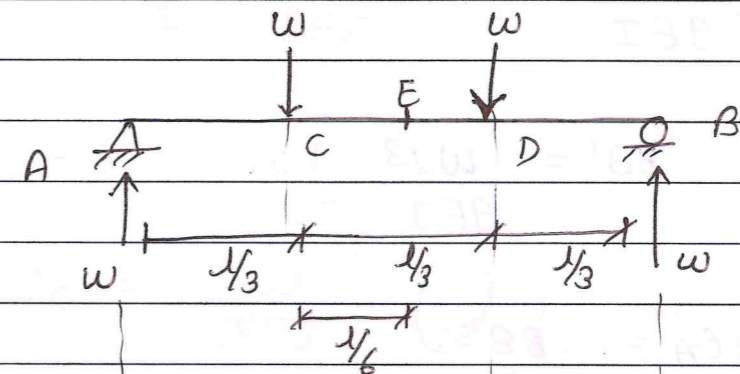 W W
E
A C D B
W l/3 l/3 l/3 W
l/6